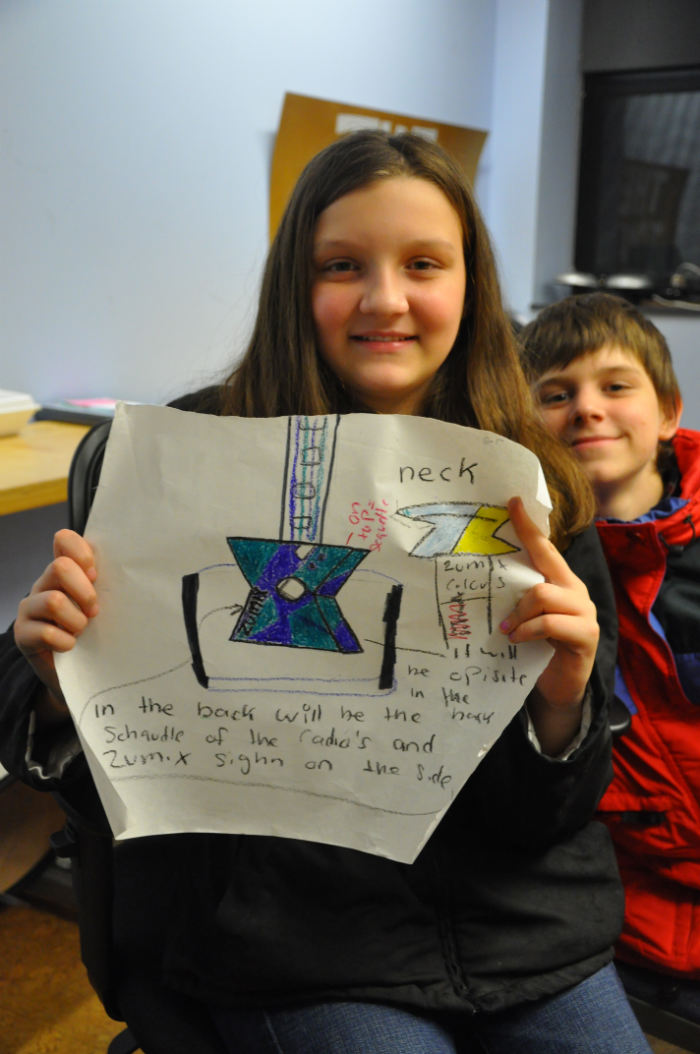 neck
on
top
zumix
colors
ZUMIX
it will
be opisite
in the
back
in the back will be the
Schaudle of the radio's and
Zumix sighn on the side